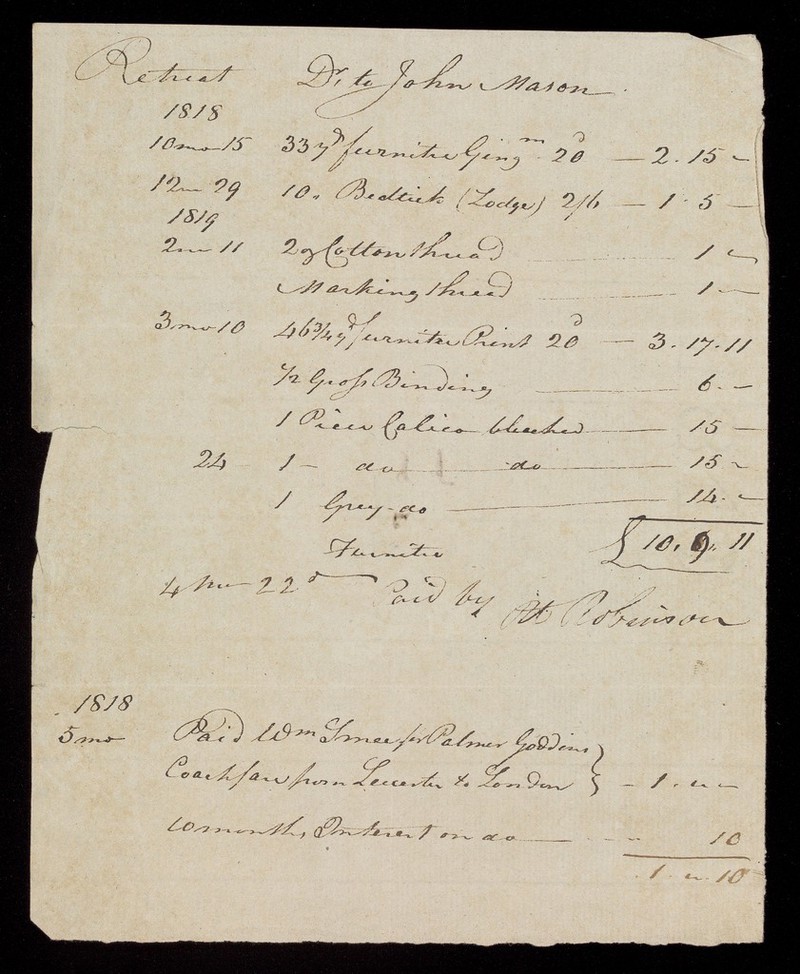 Retreat Dr. to John Mason
1818
10 mo 15 33 yd furnitre Gingm 20d — 2. 15 —
12 mo 29 10 " Bedtick (Lodge) 2/6 — 1. 5 —
1819
2 mo 11 2 oz Cotton thread 1 —
Marking thread 1 —
3 mo 10 46 3/4 yd furnitre Print 20d — 3. 17. 11
1/2 Gross Binding 6. —
1 Piece Calico bleached 15 —
24 1 — do do 15 —
1 Grey do 14. —
10. 9. 11
Furnitre
4 mo 22d Paid by Robinson
1818
5 mo Paid Wm for Palmer
Coach fare from Leicester to London } — 1. " —
10 months Interest on do — 10
1. " . 10